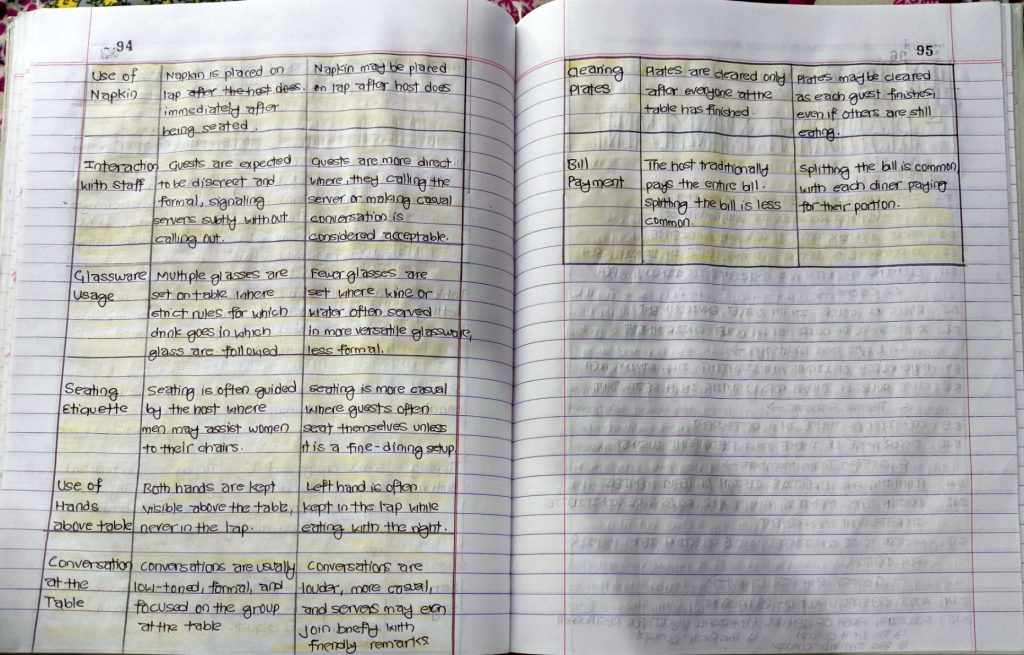 94
Use of
Napkin
Napkin is placed on
lap after the host does.
immediately after
being seated.
Napkin may be placed
on lap after host does
Interaction
with staff
Guests are expected
to be discreet and
formal, signaling
servers subtly without
calling out.
Guests are more direct
where, they calling the
server or making casual
conversation is
considered acceptable.
Glassware
Usage
Multiple glasses are
set on table where
strict rules for which
drink goes in which
glass are followed
Fewer glasses are
set where wine or
water often served
in more versatile glassware,
less formal.
Seating
Etiquette
Seating is often guided
by the host where
men may assist women
to their chairs.
Seating is more casual
where guests often
seat themselves unless
it is a fine-dining setup.
Use of
Hands
above table
Both hands are kept
visible above the table,
never in the lap.
Left hand is often
kept in the lap while
eating with the right.
Conversation
at the
Table
Conversations are usually
low-toned, formal, and
focused on the group
at the table
Conversations are
louder, more casual,
and servers may even
join briefly with
friendly remarks.
95
Clearing
Plates
Plates are cleared only
after everyone at the
table has finished.
Plates may be cleared
as each guest finishes,
even if others are still
eating.
Bill
Payment
The host traditionally
pays the entire bill.
splitting the bill is less
common.
Splitting the bill is common,
with each diner paying
for their portion.